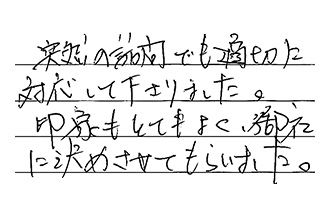 突然の訪問でも適切に
対応して下さりました。
印象もとてもよく、御社
に決めさせてもらいました。